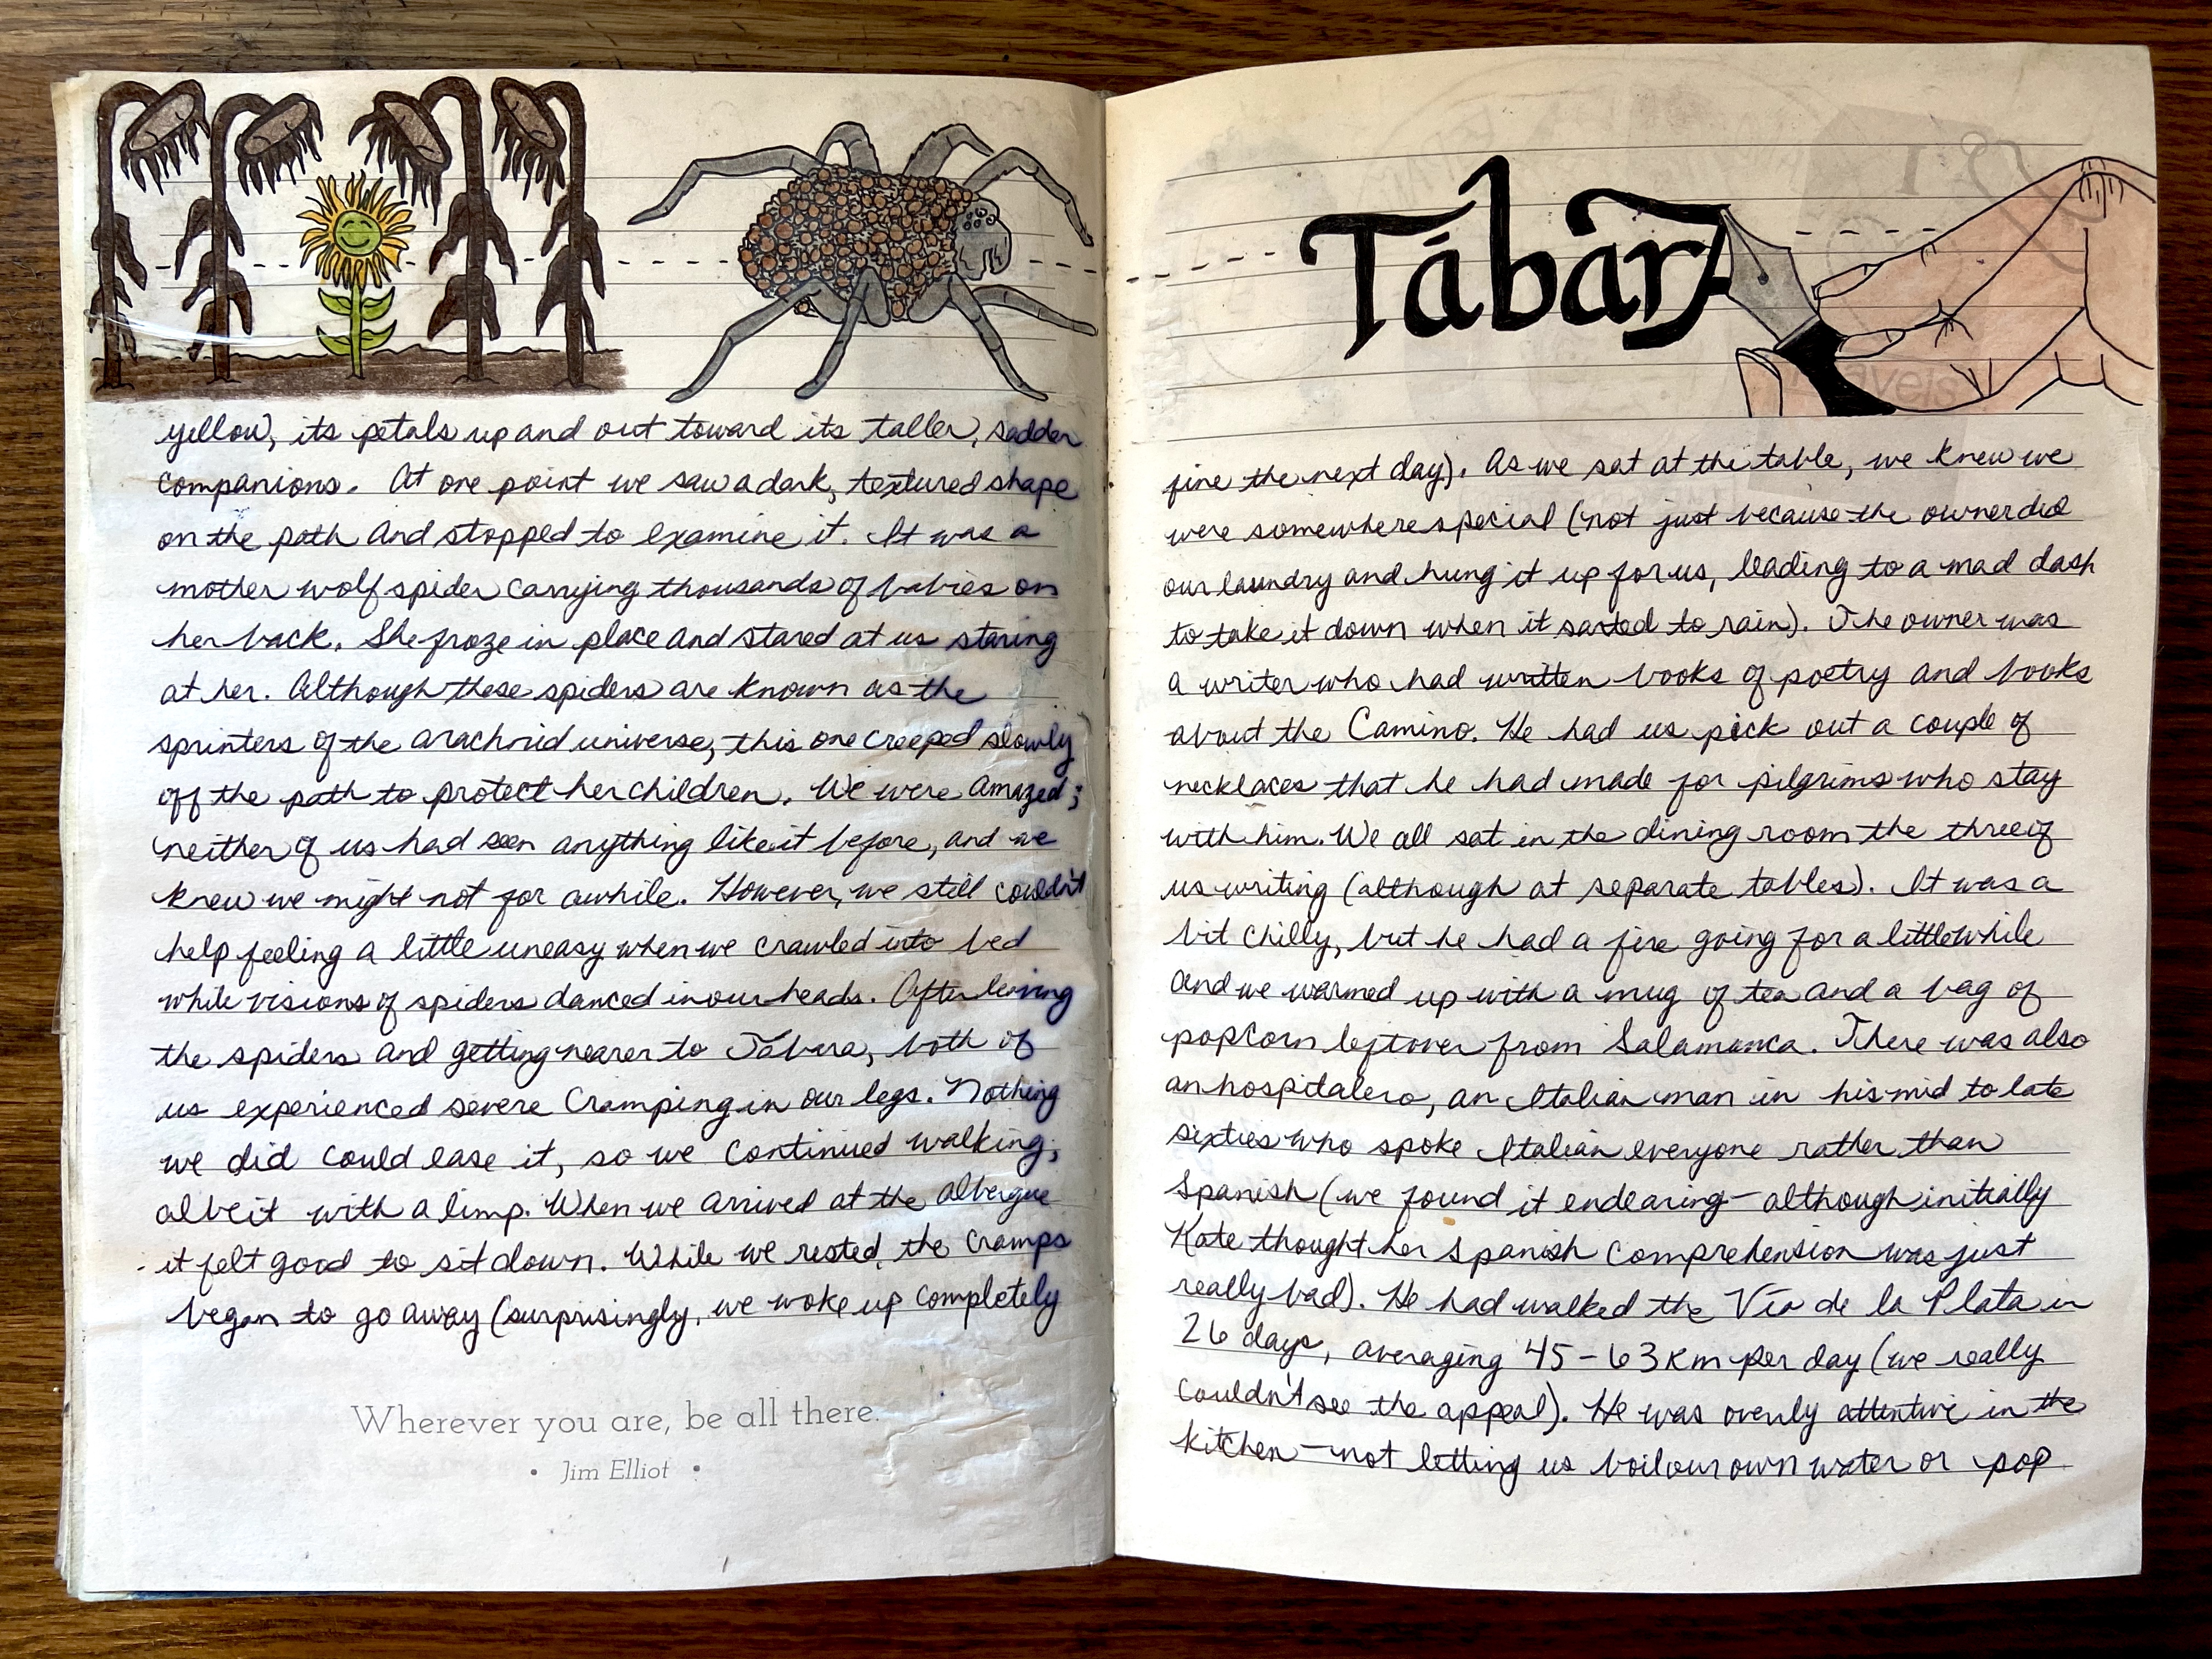 yellow, its petals up and out toward its taller, sadder
companions. At one point we saw a dark, textured shape
on the path and stopped to examine it. It was a
mother wolf spider carrying thousands of babies on
her back. She froze in place and stared at us staring
at her. Although these spiders are known as the
sprinters of the arachnid universe, this one creeped slowly
off the path to protect her children. We were amazed;
neither of us had seen anything like it before, and we
knew we might not for awhile. However, we still couldn't
help feeling a little uneasy when we crawled into bed
while visions of spiders danced in our heads. After leaving
the spiders and getting nearer to Tábara, both of
us experienced severe cramping in our legs. Nothing
we did could ease it, so we continued walking;
albeit with a limp. When we arrived at the albergue
it felt good to sit down. While we rested, the cramps
began to go away (surprisingly, we woke up completely
Wherever you are, be all there.
• Jim Elliot •
Tábar
fine the next day). As we sat at the table, we knew we
were somewhere special (not just because the owner did
our laundry and hung it up for us, leading to a mad dash
to take it down when it sarted to rain). The owner was
a writer who had written books of poetry and books
about the Camino. He had us pick out a couple of
necklaces that he had made for pilgrims who stay
with him. We all sat in the dining room the three of
us writing (although at separate tables). It was a
bit chilly, but he had a fire going for a little while
and we warmed up with a mug of tea and a bag of
popcorn leftover from Salamanca. There was also
an hospitalero, an Italian man in his mid to late
sixties who spoke Italian everyone rather than
Spanish (we found it endearing - although initially
Kate thought her Spanish comprehension was just
really bad). He had walked the Vía de la Plata in
26 days, averaging 45 - 63 km per day (we really
couldn't see the appeal). He was overly attentive in the
kitchen - not letting us boil our own water or pop